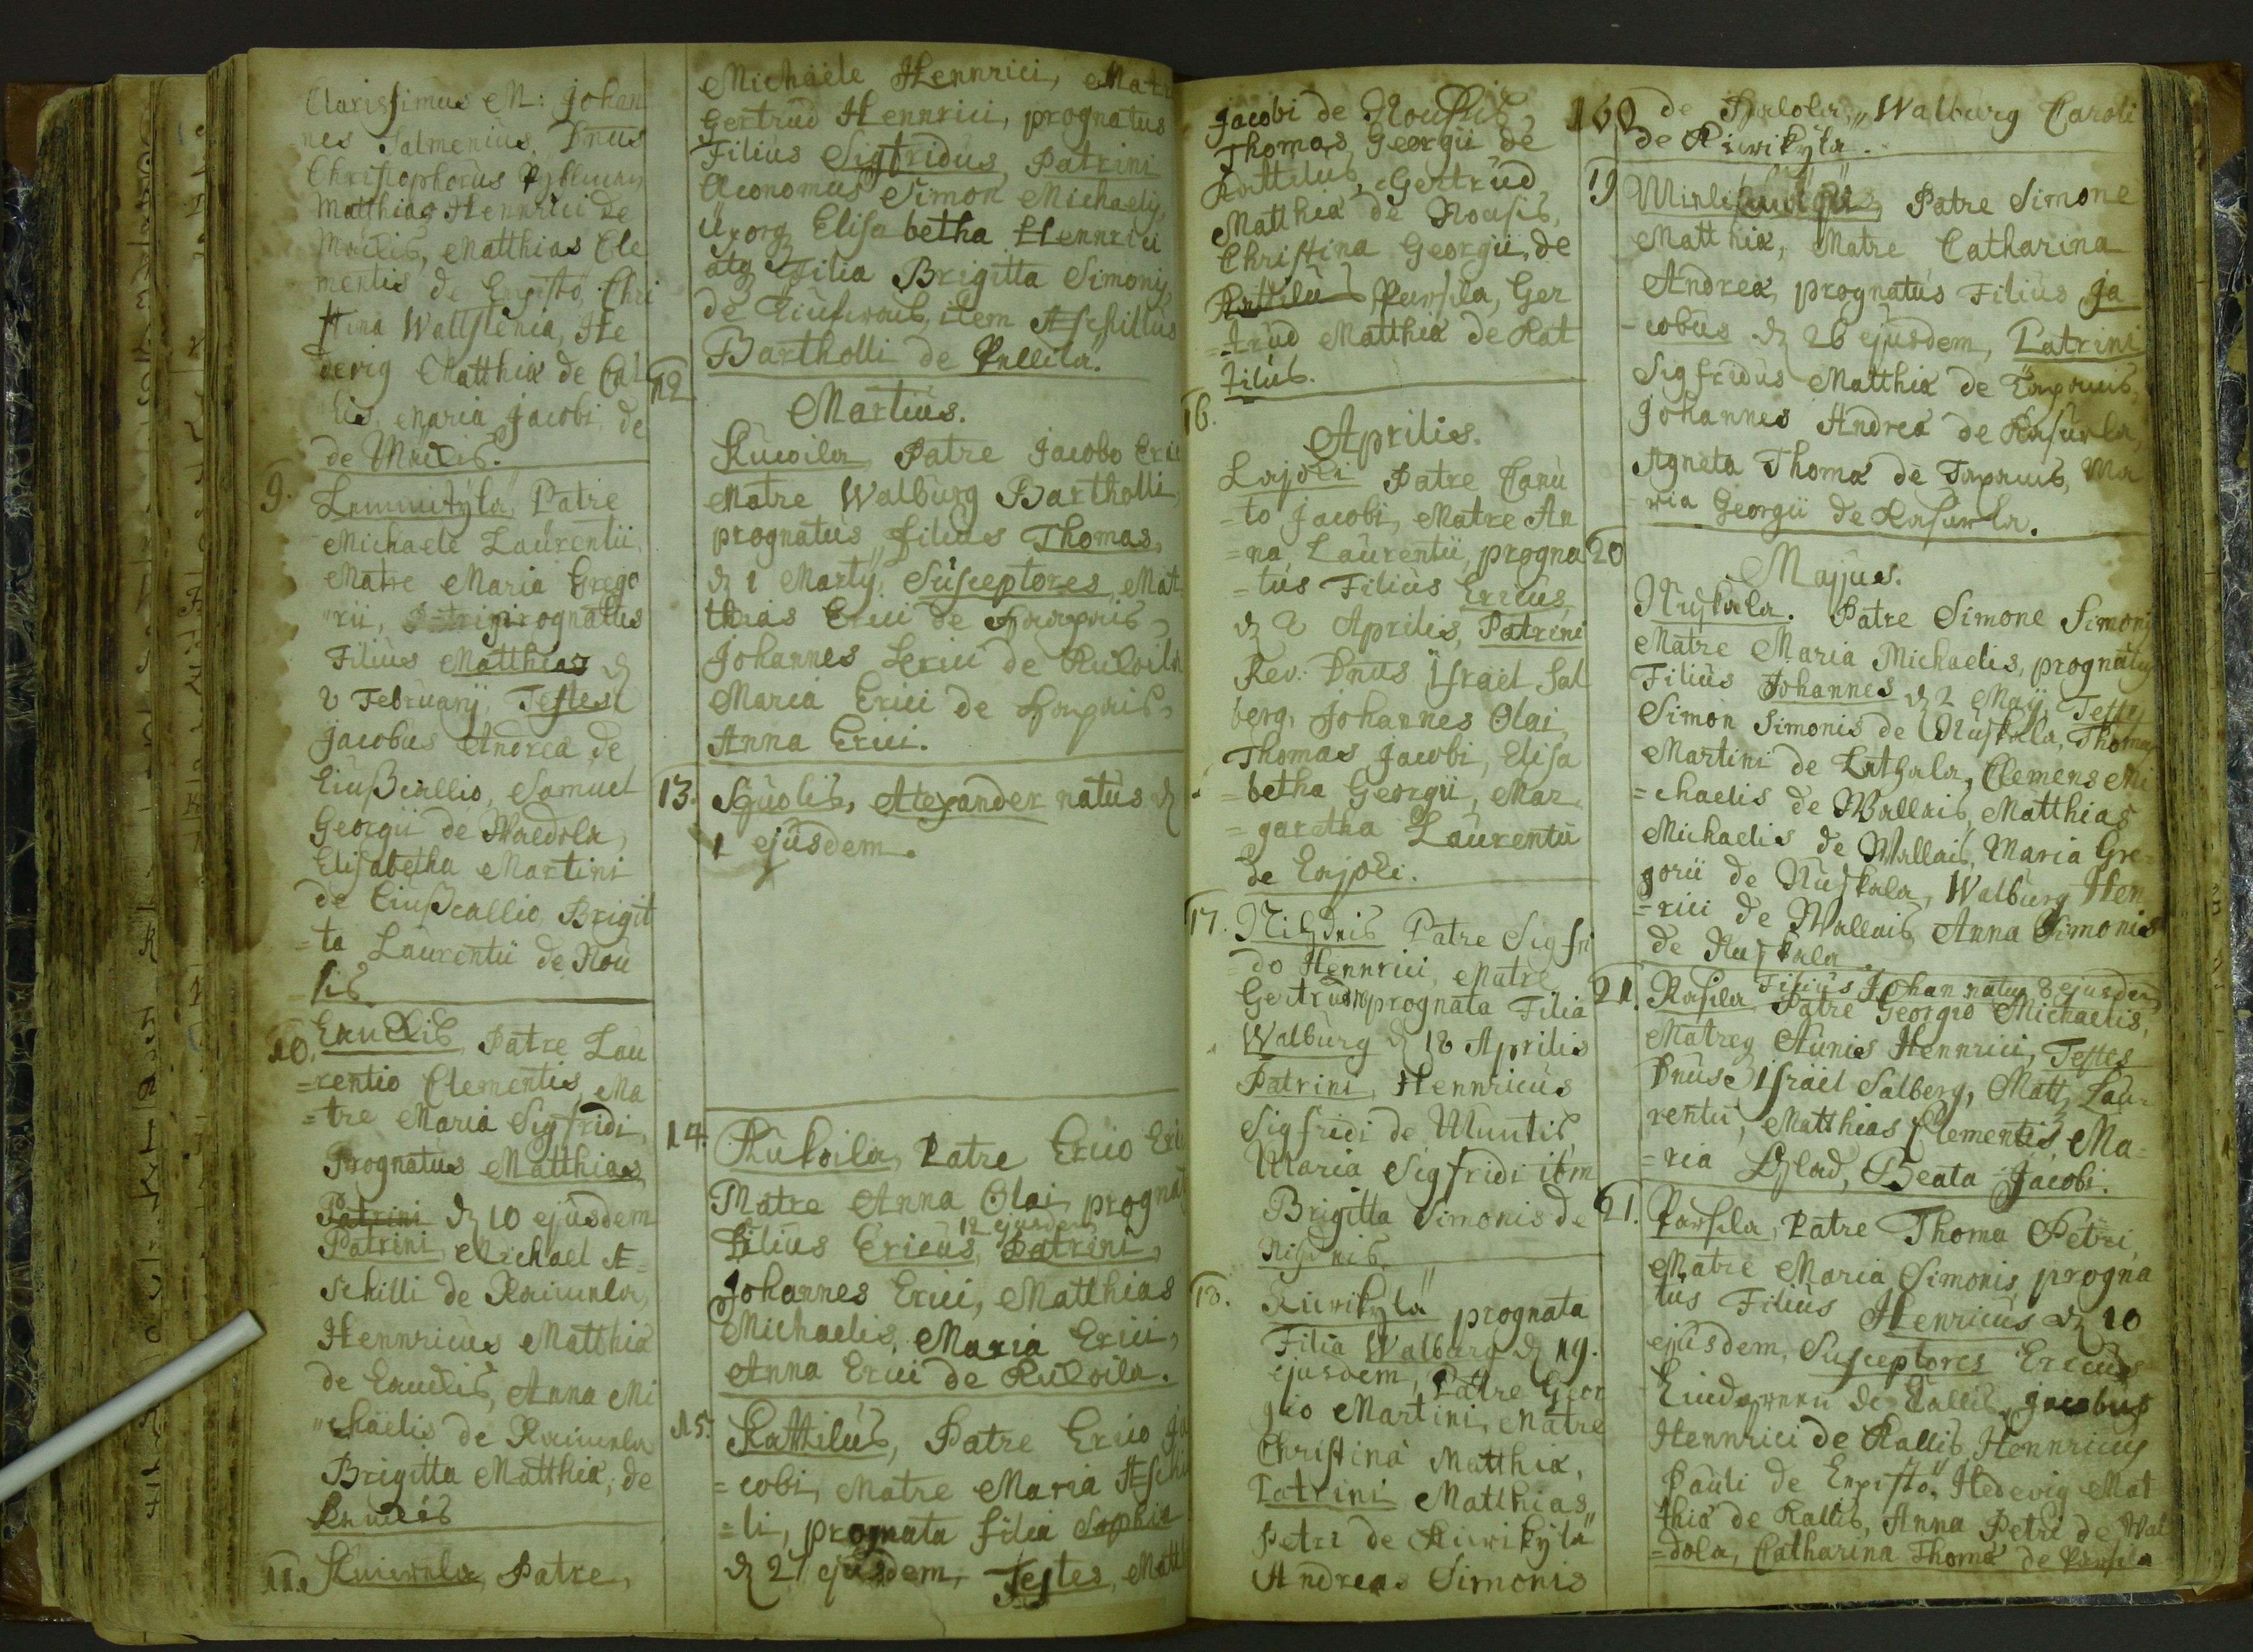 Clarissimus M: Johan
nes Salmenius, Dnus
Christophorus
Matthias Hennrici de
Mäelis, Matthias Cle
mentis de Chri
stina Wallstenia, He
devig Matthiæ de Cal
lis, Maria Jacobi, de
de Mäelis.
9. Lemmityla, Patre
Michaele Laurentii,
Matre Maria Grego
"rii, prognattus
Filius Matthias d
2 Februarij, Testes
Jacobus Andreæ de
Eiuscallio, Samuel
Georgii de
Elisabetha Martini
de Eiuscallio, Brigit
=ta Laurentii de Nou
sis
10. Patre Lau
=rentio Clementis, Ma
=tre Maria Sigfridi,
Prognatus Matthias,
Patrini d 10 ejusdem
Patrini, Michael A=
schilli de
Hennricus Matthiæ
de Anna Mi
"chaelis de
Brigitta Matthiæ, de
11. Patre,
Michaele Hennrici, Matr
Gertrud Hennrici, prognatus
Filius Sigfridus, Patrini
Oeconomus Simon Michaelis,
uxorq Elisabetha Hennrici
atq Filia Brigitta Simonis,
de item Aschillus
Bartholli de Pullila.
12
Martius.
Kuwila, Patre Jacobo Eric
Matre Walburg Bartholli,
prognatus, filius Thomas,
d 1 Martij, Susceptores, Mat
thias Erici de
Johannes Erici de
Maria Erici de
Anna Erici.
13. Alexander natus d
1 ejusdem.
14. Patre Erico Eri
Matre Anna Olai, progna
12 ejusdem
Filius Ericus, Patrini,
Johannes Erici, Matthias
Michaelis, Maria Erici,
Anna Erici de
15. Kattelus, Patre Erico Ja
=cobi, Matre Maria Aschi
=li, prognata filia Sophia
d 27 ejusdem, Testes, Matt
Jacobi de Nousis,
Thomas Georgii de
Kattelus, Gertrud
Matthiæ de Nousis,
Christina Georgii, de
Kattelus Parsila, Ger
=trud Matthiæ de Kat
tilus.
16.
Aprilis.
Lajoki Patre Canu
=to Jacobi, Matre An
=na Laurentii, progna
=tus Filius Ericus,
d 2 Aprilis, Patrini
Rev. Dnus Israël Sal
berg, Johannes Olai,
Thomas Jacobi, Elisa
=betha Georgii, Mar
=garetha Laurentii
de Lajoki.
17. Patre Sigfri
do Hennrici, Matre
Gertrud prognata Filia
Walburg d 18 Aprilis
Patrini, Hennricus
Sigfridi de Muntis,
Maria Sigfridi itm
Brigitta Simonis de
18. Kiwikylä prognata
Filia Walburg d 19.
ejusdem, Patre Geor
gio Martini, Matre
Christina Matthiæ,
Patrini Matthias,
Petri de Kiwikylä
Andreas Simonis
160 de Walburg Caroli
de Kiwikyla.
19 Patre Simone
Matthiæ, Matre Catharina
Andreæ, prognatus Filius Ja
=cobus d 26 ejusdem, Patrini
Sigfridus Matthiæ de
Johannes Andreæ de
Agneta Thomæ de Ma
=ria Georgii de
20
Majus.
Nuskala. Patre Simone Simonis
Matre Maria Michaelis, prognatus
Filius Johannes d 2 Maij, Testes
Simon Simonis de Nuskala, Thomas
Martini de Clemens Mi
=chaelis de Wallais, Matthias
Michaelis de Wallais, Maria Gre=
gorii de Nuskala, Walburg Hen
=rici de Wallais, Anna Simonis
de Nuskala
21. Filius Johan natus 8 ejusdem
Rasila Patre Georgio Michaelis,
Matreq Hennrici, Testes
Dnus Israël Salberg, Matt, Lau=
rentii, Matthias Clementis, Ma=
=ria Beata Jacobi.
21. Parsila, Patre Thoma Petri,
Matre Maria Simonis, progna
tus Filius Henricus d 10
ejusdem, Susceptores Ericus
de Kallis, Jacobus
Hennrici de Kallis, Hennricus
Pauli de Hedevig Mat
thiæ de Kallis, Anna Petri de Wal
=dola, Catharina Thomæ de Parsila